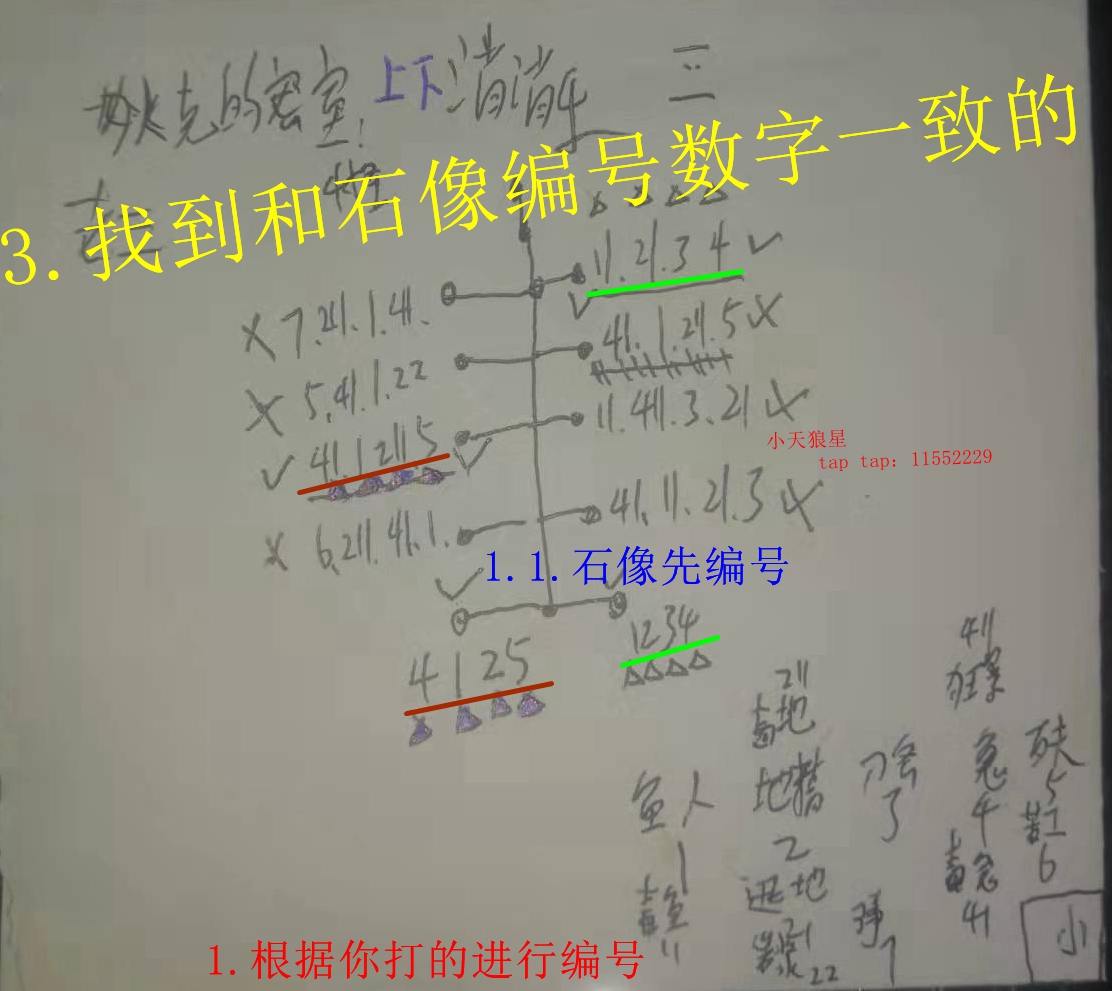 妙火克的密室! 上下消消乐 三
3.找到和石像编号数字一致的
11.21.3 4 ✓
✗ 7.211.1.41.
41.1.211.5 ✗
✗ 5.41.1.22
11.411.3.21 ✗
小天狼星
tap tap: 11552229
✓ 41.1 211.5
41.11.21.3 ✗
✗ 6.211.41.1.
1.1.石像先编号
1234
4 1 2 5
411
211
毒地
鱼人
地精
刀客
1
2
5
4
6
毒鱼
遁地
毒忽
11
21
41
22
7
小
1.根据你打的进行编号